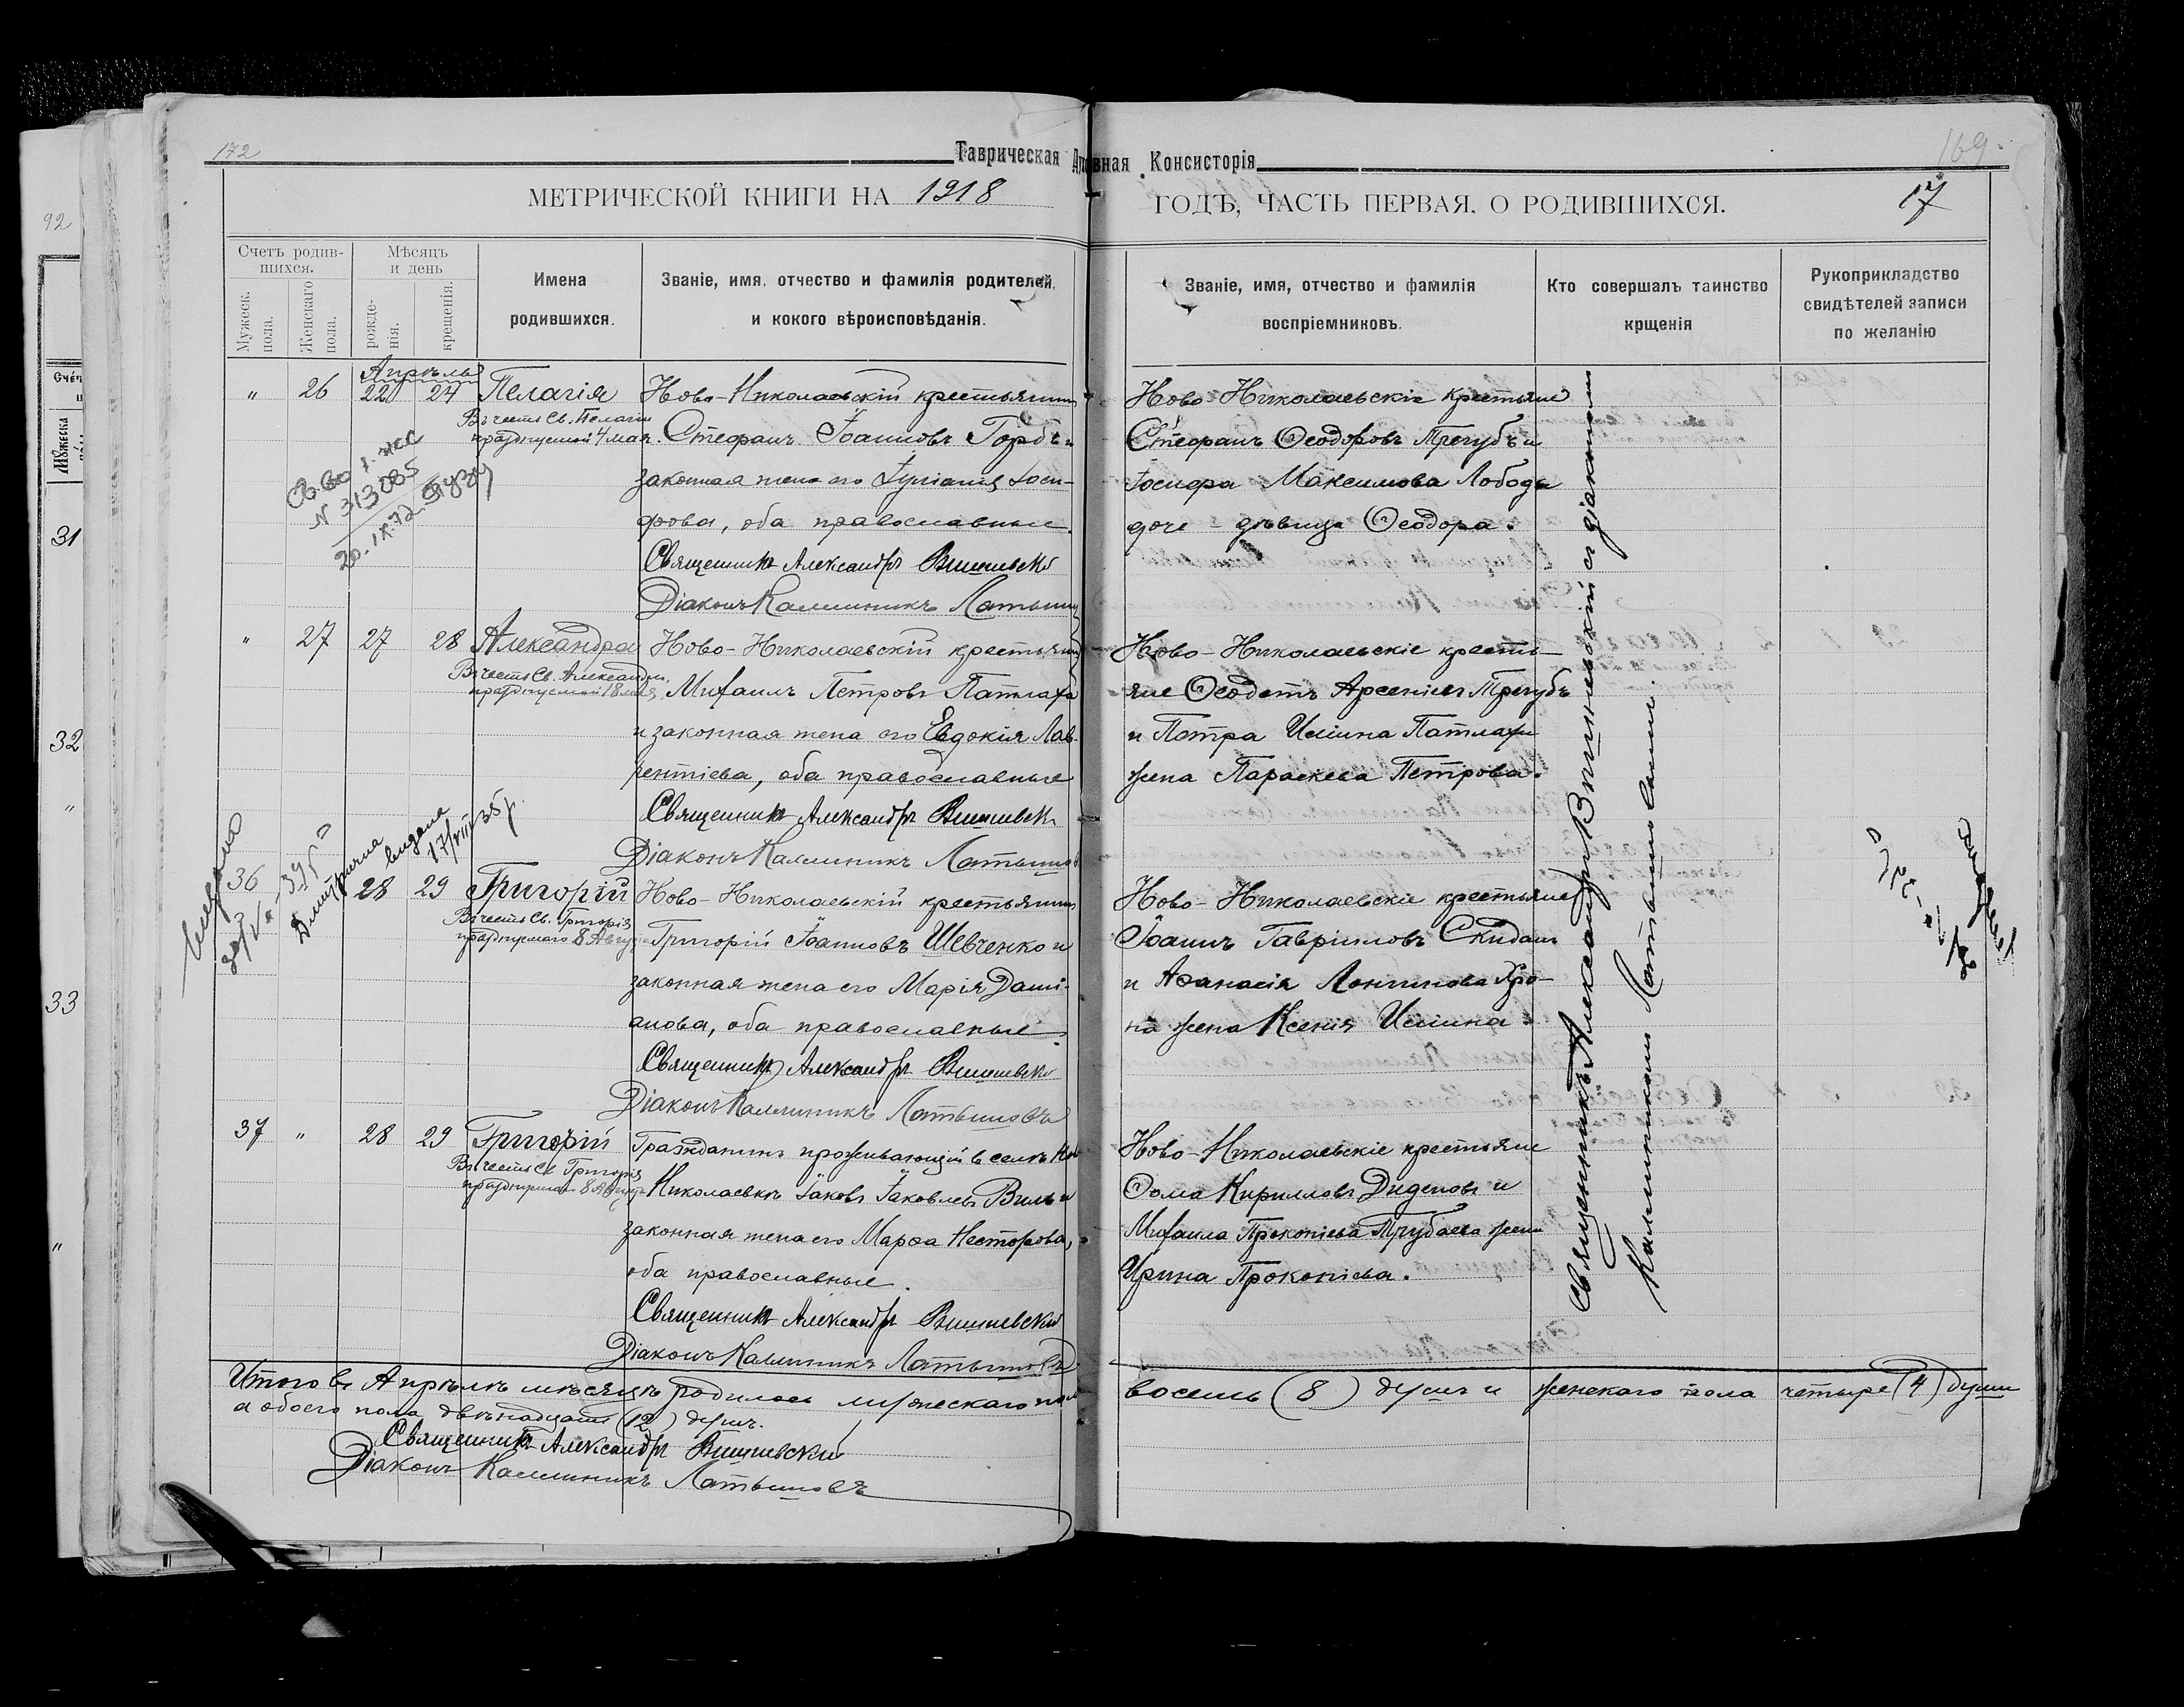 172
Таврическая Духовная Консисторія
169
МЕТРИЧЕСКОЙ КНИГИ НА 1918
ГОДЪ, ЧАСТЬ ПЕРВАЯ, О РОДИВШИХСЯ.
17
Счетъ родившихся.
Мужеск. пола.
Женскаго пола.
Мѣсяцъ и день
рожденія.
крещенія.
Имена
родившихся.
Званіе, имя, отчество и фамилія родителей,
и кокого вѣроисповѣданія.
Званіе, имя, отчество и фамилія
воспріемниковъ.
Кто совершалъ таинство
крщенія
Рукоприкладство
свидѣтелей записи
по желанію
Апрѣль
" 26 22 24 Пелагія
Въ честь Св. Пелагіи
празднуемой 4 мая.
Ново-Николаевскій крестьянинъ
Стефанъ Іоанновъ Горбъ и
законная жена его Іуліанія Іоси-
фова, оба православные.
Священникъ Александръ Вишневскій
Діаконъ Каллиникъ Латышовъ
Ново-Николаевскіе крестьяне
Стефанъ Ѳеодоровъ Трегубъ и
Іосифа Максимова Лободы
дочь - дѣвица Ѳеодора.
N 313085
" 27 27 28 Александра
Въ честь Св. Александры,
празднуемой 18 мая,
Ново-Николаевскій крестьянинъ
Михаилъ Петровъ Патлаха
и законная жена его Евдокія Лав-
рентіева, оба православные
Священникъ Александръ Вишневскій
Діаконъ Каллиникъ Латышовъ
Ново-Николаевскіе кресть-
яне Ѳеодотъ Арсеніевъ Трегубъ
и Петра Иліина Патлахи
жена Параскева Петрова.
36 28 29 Григорій
Въ честь Св. Григорія
празднуемаго 8 Августа
Ново-Николаевскій крестьянинъ
Григорій Іоанновъ Шевченко и
законная жена его Марія Дамі-
анова, оба православные.
Священникъ Александръ Вишневскій
Діаконъ Каллиникъ Латышовъ
Ново-Николаевскіе крестьяне
Іоаннъ Гавріиловъ Скиданъ
и Аѳанасія Лонгинова
жена Ксенія Иліина.
видана
17/VIII 35 р.
37 " 28 29 Григорій
Въ честь Св. Григорія
празднуемаго 8 Августа
Гражданинъ проживающій въ селѣ Ново-
Николаевкѣ Іаковъ Іаковлевъ Виль и
законная жена его Марѳа Несторова,
оба православные.
Священникъ Александръ Вишневскій
Діаконъ Каллиникъ Латышовъ
Ново-Николаевскіе крестьяне
Ѳома Кирилловъ Диденовъ и
Михаила Прокопіева жена
Ирина Прокопіева.
Священникъ Александръ Вишневскій съ діакономъ
Каллиникомъ Латышовымъ
Итого въ Апрѣлѣ мѣсяцѣ родилось мужескаго пола восемь (8) душъ и женскаго пола четыре (4) души
а обоего пола двѣнадцать (12) душъ.
Священникъ Александръ Вишневскій
Діаконъ Каллиникъ Латышовъ
92
31
32
"
33
"